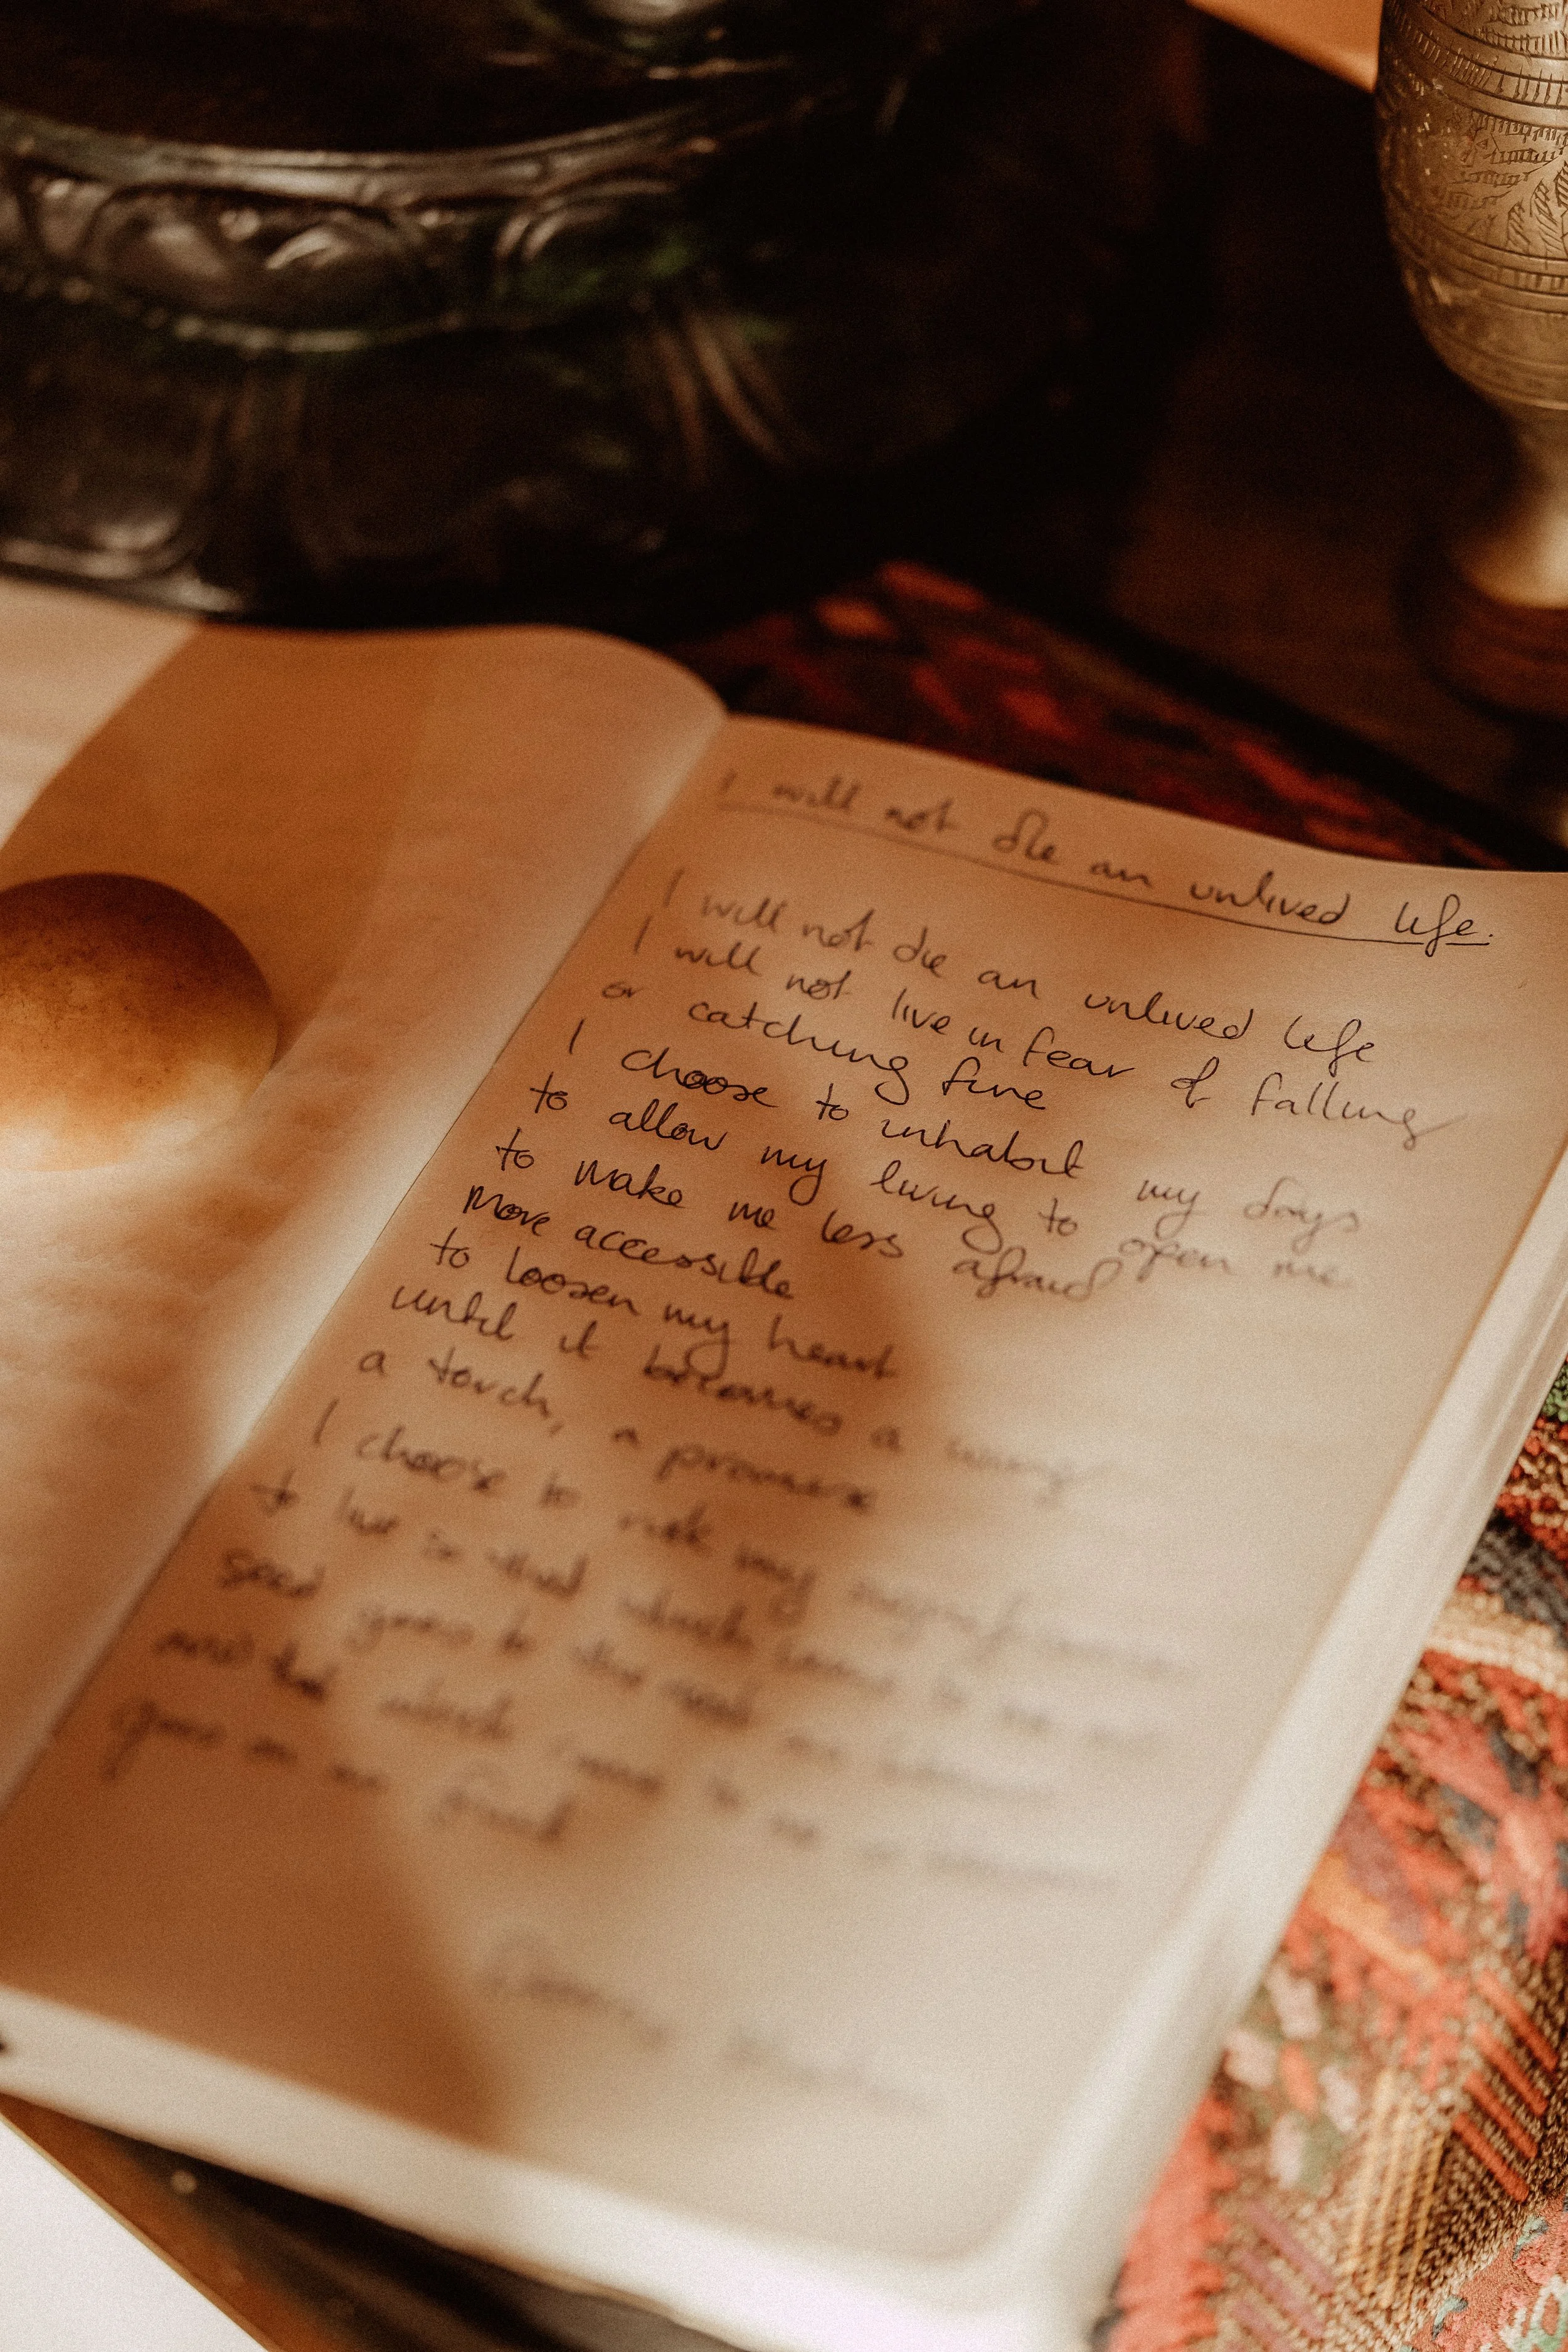 I will not die an unlived life.
I will not die an unlived life
I will not live in fear of falling
or catching fire
I choose to inhabit my days
to allow my living to open me
to make me less afraid
more accessible
to loosen my heart
until it becomes a wing
a torch, a promise
I choose to risk my significance
to live so that which came to me as
seed goes to the next as blossom
and that which came to me as blossom
goes on as fruit